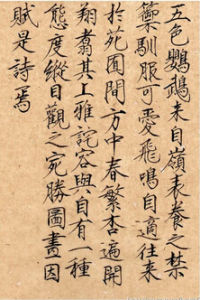 五色鸚鵡來自嶺表養之禁
籞馴服可愛飛鳴自適往來
於苑囿間方中春繁杏遍開
翔翥其上雅詫容與自有一種
態度縱目觀之宛勝圖畫因
賦是詩焉